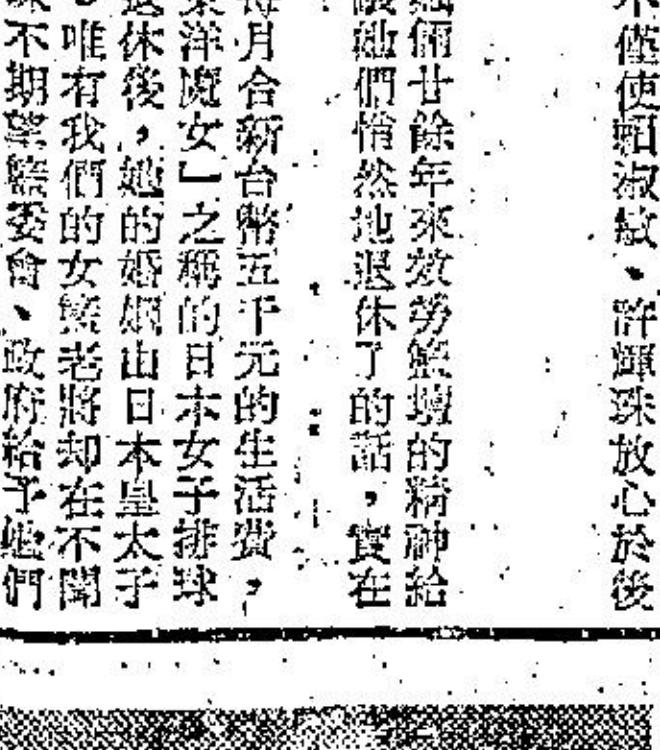 不僅使賴淑敏、許輝珠放心於後
倆廿餘年來效勞籃壇的精神給
她們悄然地退休了的話,實在
每月合新台幣五千元的生活費,
東洋魔女」之稱的日本女子排球
退休後,她的婚姻由日本皇太子
。唯有我們的女籃老將却在不聞
不期望籃委會、政府給予她們